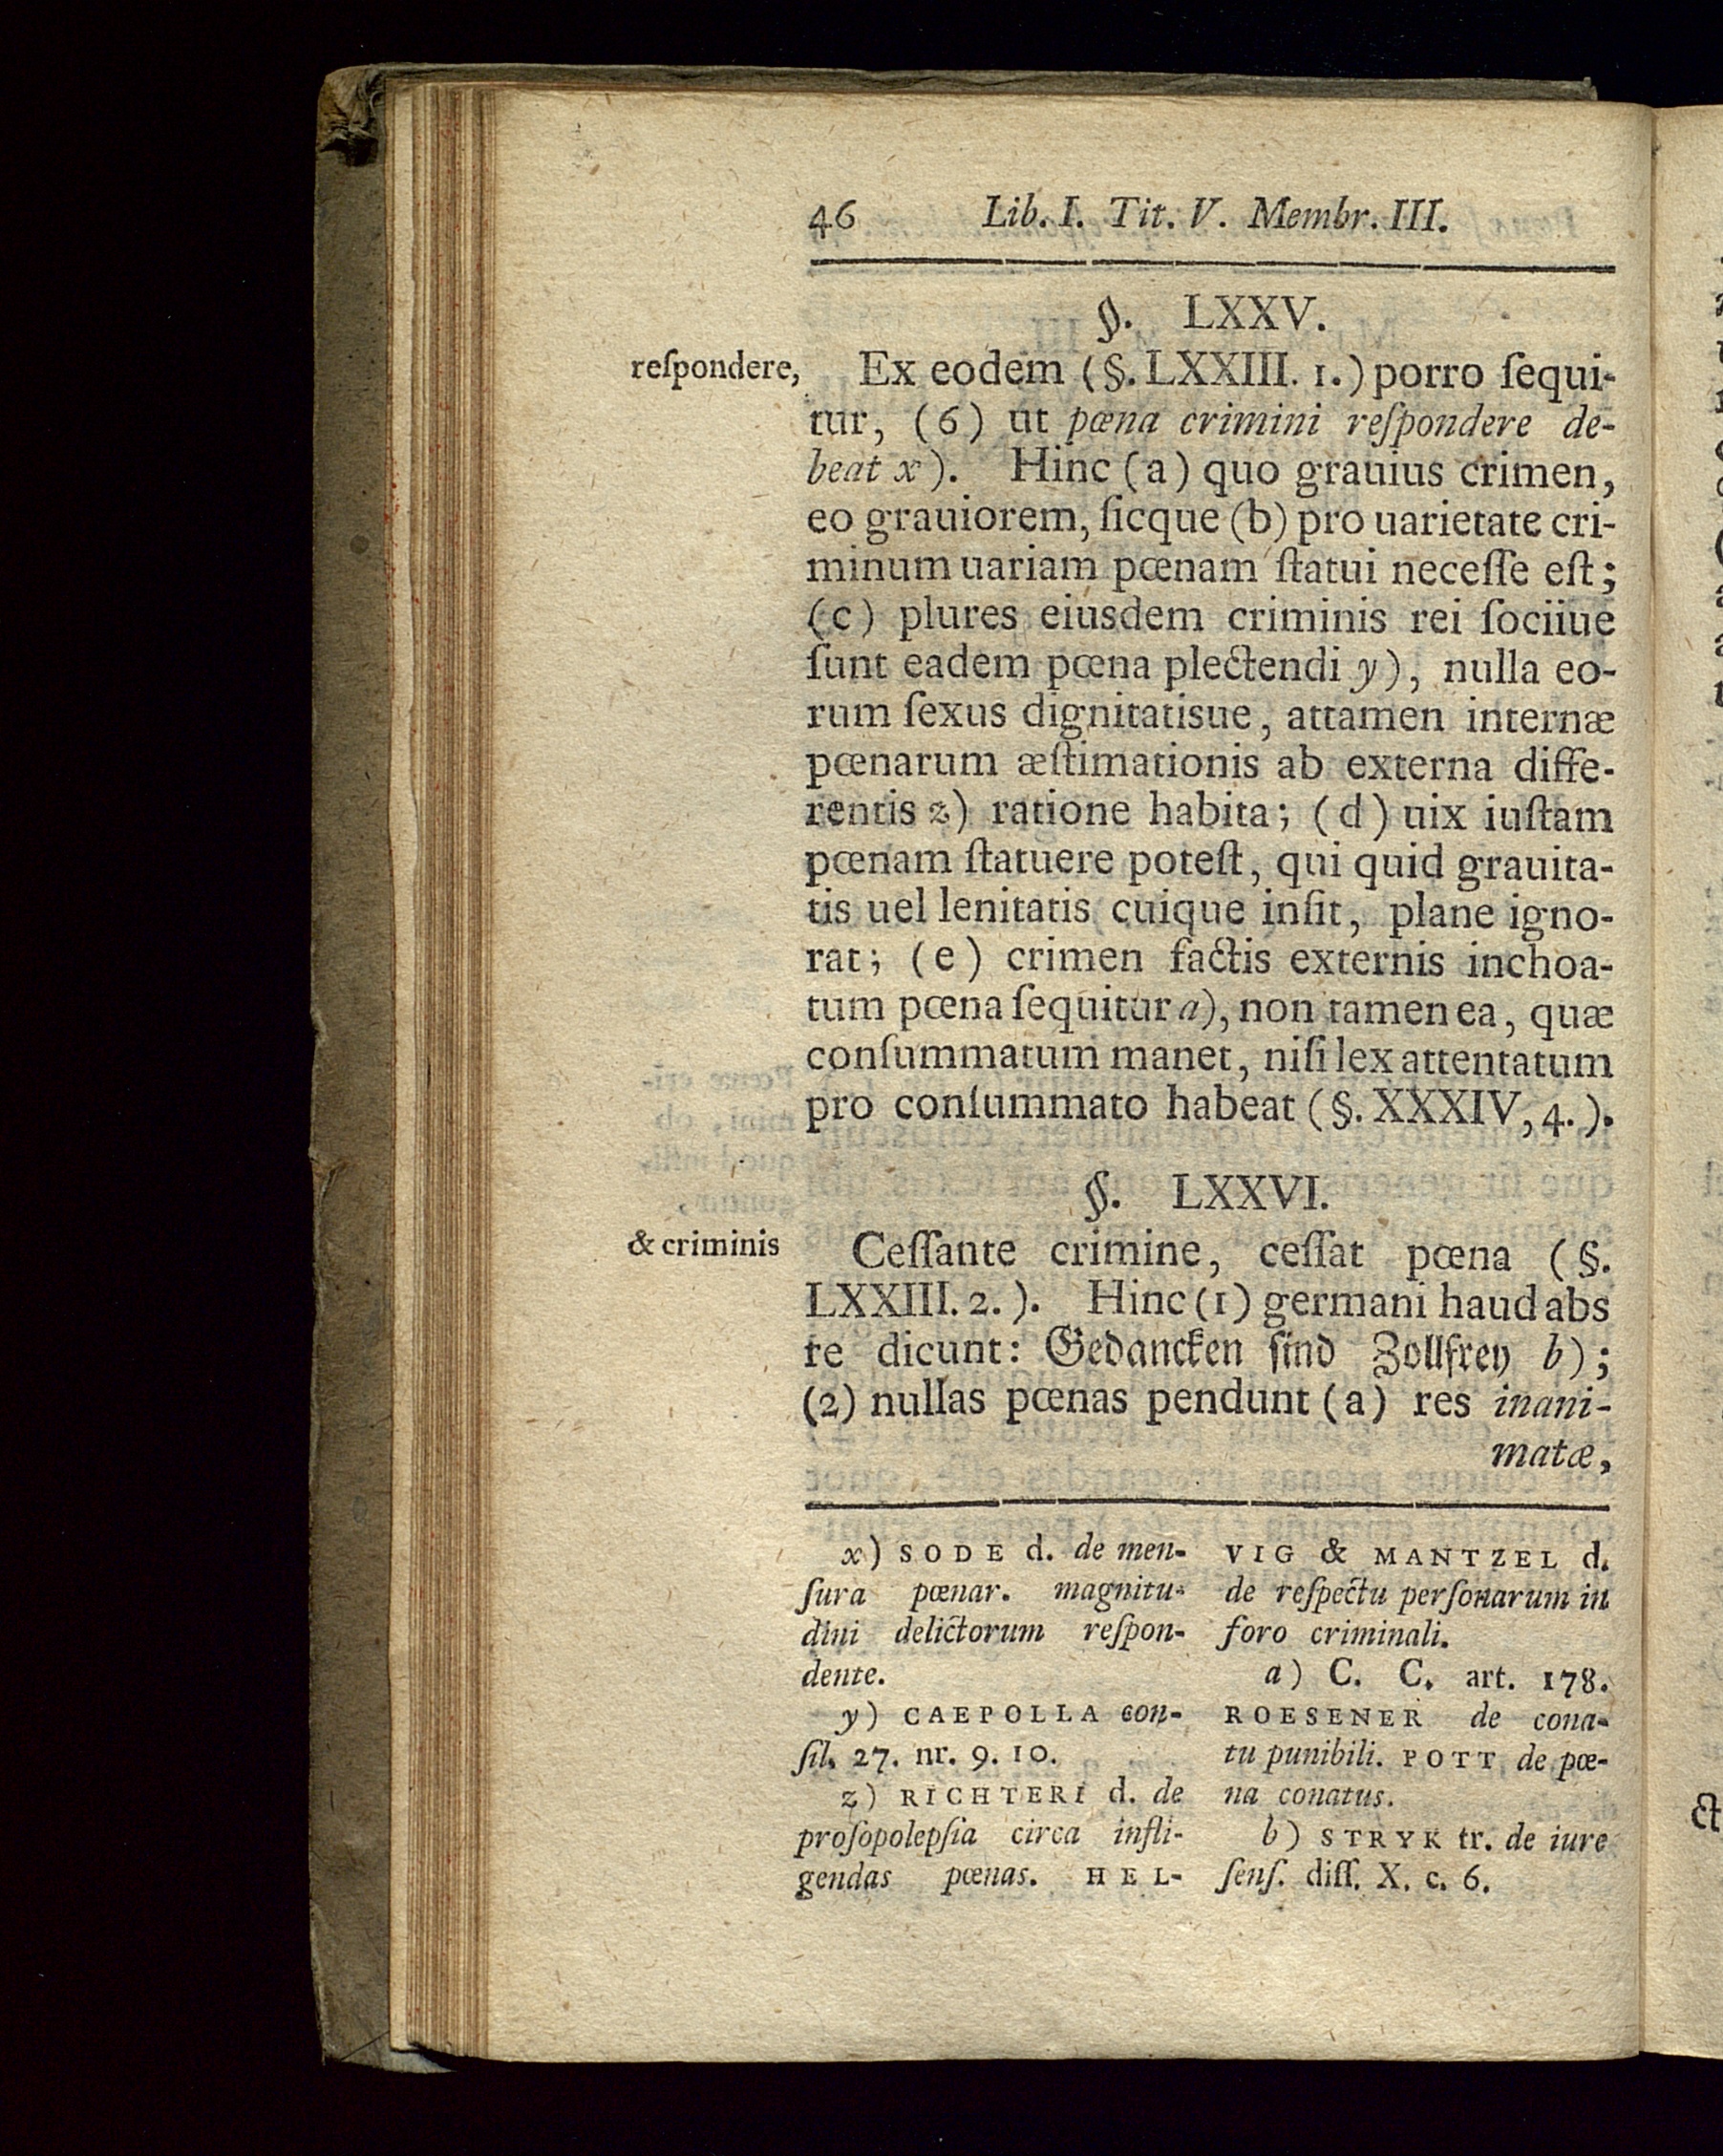 46 Lib. I. Tit. V. Membr. III.
§. LXXV.
reſpondere,
Ex eodem (§. LXXIII. 1.) porro ſequi-
tur, (6) ut pœna crimini reſpondere de-
beat x). Hinc (a) quo grauius crimen,
eo grauiorem, ſicque (b) pro uarietate cri-
minum uariam pœnam ſtatui neceſſe eſt;
(c) plures eiusdem criminis rei ſociiue
ſunt eadem pœna plectendi y), nulla eo-
rum ſexus dignitatisue, attamen internæ
pœnarum æſtimationis ab externa diffe-
rentis z) ratione habita; (d) uix iuſtam
pœnam ſtatuere poteſt, qui quid grauita-
tis uel lenitatis cuique inſit, plane igno-
rat; (e) crimen factis externis inchoa-
tum pœna ſequitur a), non tamen ea, quæ
conſummatum manet, niſi lex attentatum
pro conſummato habeat (§. XXXIV, 4.).
§. LXXVI.
& criminis
Ceſſante crimine, ceſſat pœna (§.
LXXIII. 2.). Hinc (1) germani haud abs
re dicunt: Gedancken ſind Zollfrey b);
(2) nullas pœnas pendunt (a) res inani-
matæ,
x) SODE d. de men-
ſura pœnar. magnitu-
dini delictorum reſpon-
dente.
y) CAEPOLLA con-
ſil. 27. nr. 9. 10.
z) RICHTERI d. de
proſopolepſia circa infli-
gendas pœnas. HEL-
VIG & MANTZEL d.
de reſpectu perſonarum in
foro criminali.
a) C. C. art. 178.
ROESENER de cona-
tu punibili. POTT de pœ-
na conatus.
b) STRYK tr. de iure
ſenſ. diſſ. X. c. 6.